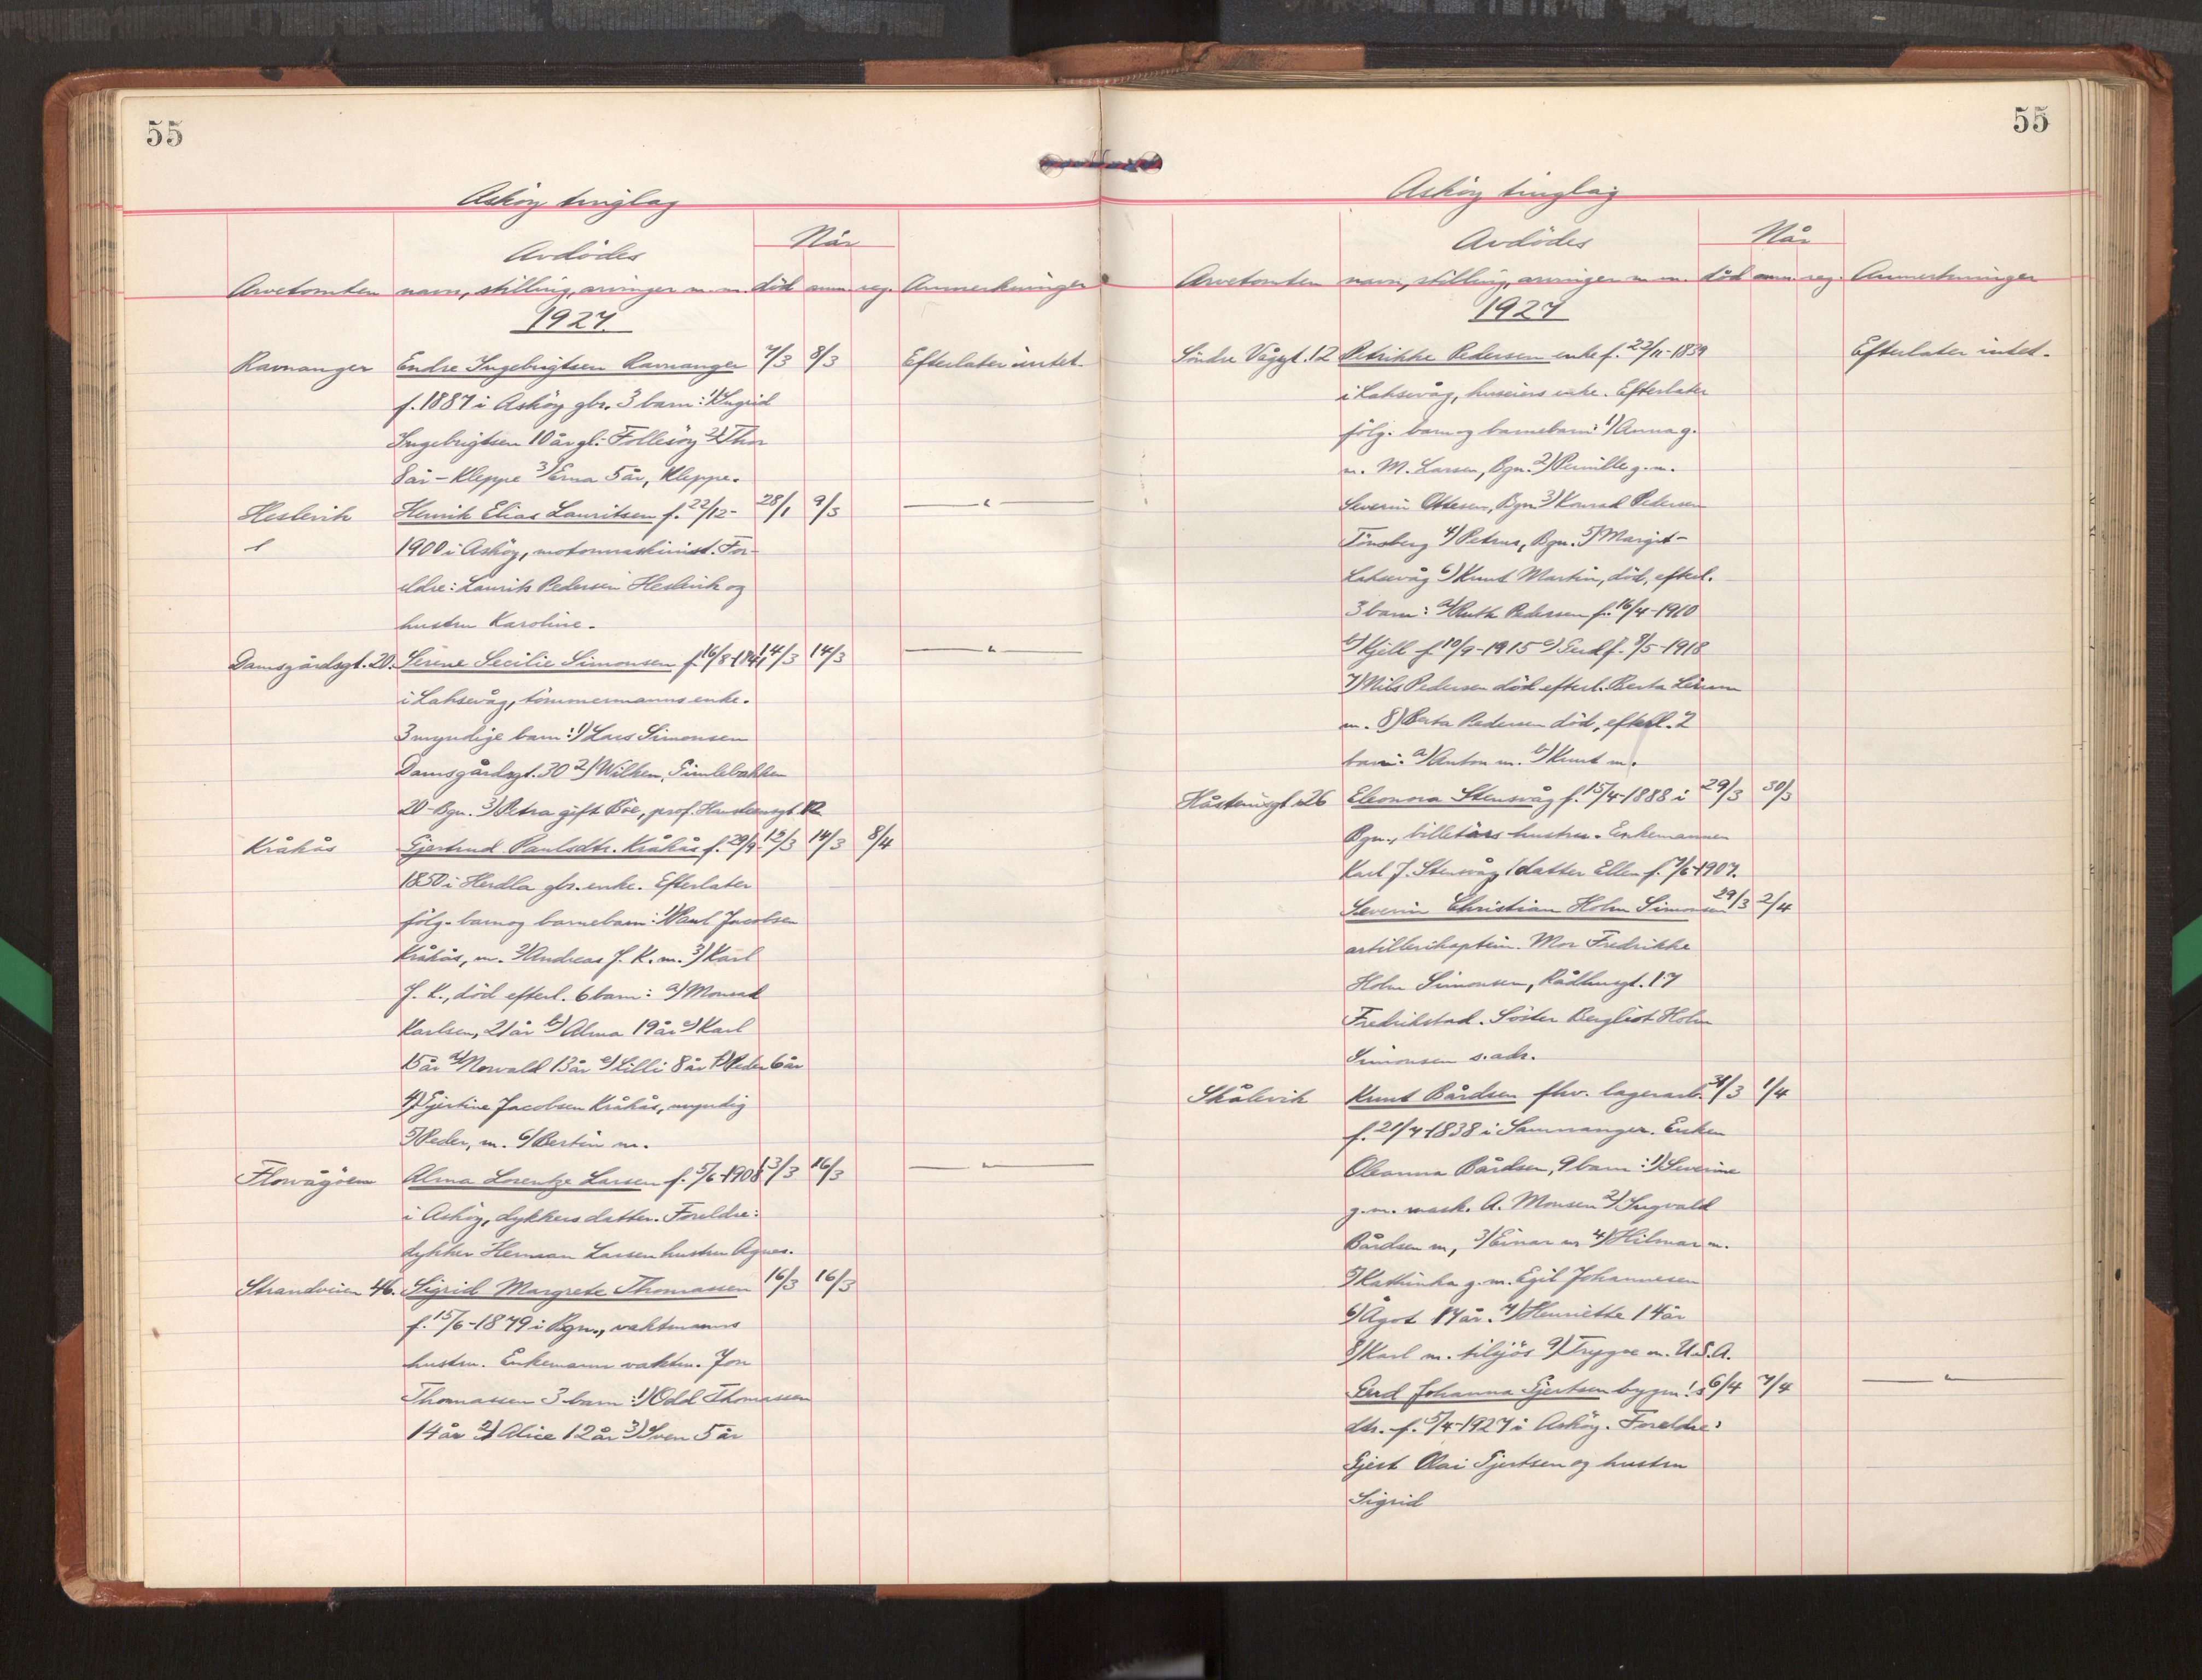 55
Asköy tinglag
Avdödes
Når
Arvetomten navn, stilling, arvinger m. m. död anm reg. Anmerkninger
1927.
Ravnanger Endre Ingebrigtsen Ravnanger 7/3 8/3 Efterlater intet.
f. 1887 i Asköy gbr. 3 barn: 1) Ingrid
Ingebrigtsen 10 år gl. Follesöy 2) Thor
8 år - Kleppe 3) Erna 5 år, Kleppe.
Heslevik Henrik Elias Lauritsen f. 22/12- 28/1 9/3 — " —
1900 i Asköy, motormaskinist. For-
eldre: Laurits Pedersen Heslevik og
hustru Karoline.
Damsgårdsgt. 20. Serene Secilie Simonsen f. 16/8-1841 14/3 14/3 — " —
i Laksevåg, tömmermanns enke.
3 myndige barn: 1) Lars Simonsen
Damsgårdsgt. 30 2) Wilhem,
20 - Bgn. 3) Petra gift Böe, prof.
Kråkås Gjertrud Paulsdtr. Kråkås f. 29/9- 12/3 14/3 8/4
1850 i Herdla gbr. enke. Efterlater
fölg. barn og barnebarn: 1) Paul Jacobsen
Kråkås, m. 2) Andreas J. K. m. 3) Karl
J. K., död efterl. 6 barn: a) Monrad
Karlsen, 21 år b) Alma 19 år c) Karl
15 år d) Norvald 13 år e) Lilli 8 år f) Peder 6 år
4) Gjertine Jacobsen Kråkås, myndig
5) Peder, m. 6) Bertin m.
Florvågöen Alma Lorentze Larsen f. 5/6-1908 13/3 16/3 — " —
i Asköy, dykkers datter. Foreldre:
dykker Herman Larsen hustru Agnes.
Strandveien 46. Sigrid Margrete Thomassen 16/3 16/3
f. 15/6-1879 i Bgn., vaktmanns
hustru. Enkemann vaktm. Jon
Thomassen 3 barn: 1) Odd Thomassen
14 år 2) Alice 12 år 3) Sven 5 år
55
Asköy tinglag
Avdödes
Når
Arvetomten navn, stilling, arvinger m. m. död anm reg. Anmerkninger
1927
Söndre Vågsgt. 12 Petrikke Pedersen enke f. 22/11-1839 Efterlater intet.
i Laksevåg, huseiers enke. Efterlater
fölg. barn og barnebarn: 1) Anna g.
m. M. Larsen, Bgn. 2) Pernille g. m.
Severin Ottesen, Bgn. 3) Konrad Pedersen
Tönsberg 4) Petrus, Bgn. 5) Margit -
Laksevåg 6) Knut Martin, död, efterl.
3 barn: a) Ruth Pedersen f. 16/4-1910
b) Kjell f. 10/9-1915 c) Gerd f. 9/5-1918
7) Nils Pedersen död efterl. Berta
m. 8) Berta Pedersen död, efterl. 2
barn: a) Anton m. b) Knut m.
26 Eleonora Stensvåg f. 15/4-1888 i 29/3 30/3
Bgn., billetörs hustru. Enkemannen
Karl J. Stensvåg 1 datter Ellen f. 7/6-1907.
Severin Christian Holm Simonsen 29/3 2/4
artillerikaptein. Mor Fredrikke
Holm Simonsen, Rådhusgt. 17
Fredrikstad. Söster Bergliot Holm
Simonsen s. adr.
Skålevik Knut Bårdsen fhv. lagerarb. 31/3 1/4
f. 21/4-1838 i Samnanger. Enken
Oleanna Bårdsen, 9 barn: 1) Severine
g. m. mask. A. Monsen 2) Ingvald
Bårdsen m, 3) Einar m 4) Hilmar m.
5) Kathinka g. m. Egil Johannesen
6) Ågot 17 år. 7) Henriette 14 år
8) Karl m. tilsjös 9) Trygve m. U.S.A.
Gerd Johanna Gjertsen bygm.s 6/4 7/4 — " —
dtr. f. 5/4-1927 i Asköy. Foreldre:
Gjert Olai Gjertsen og hustru
Sigrid